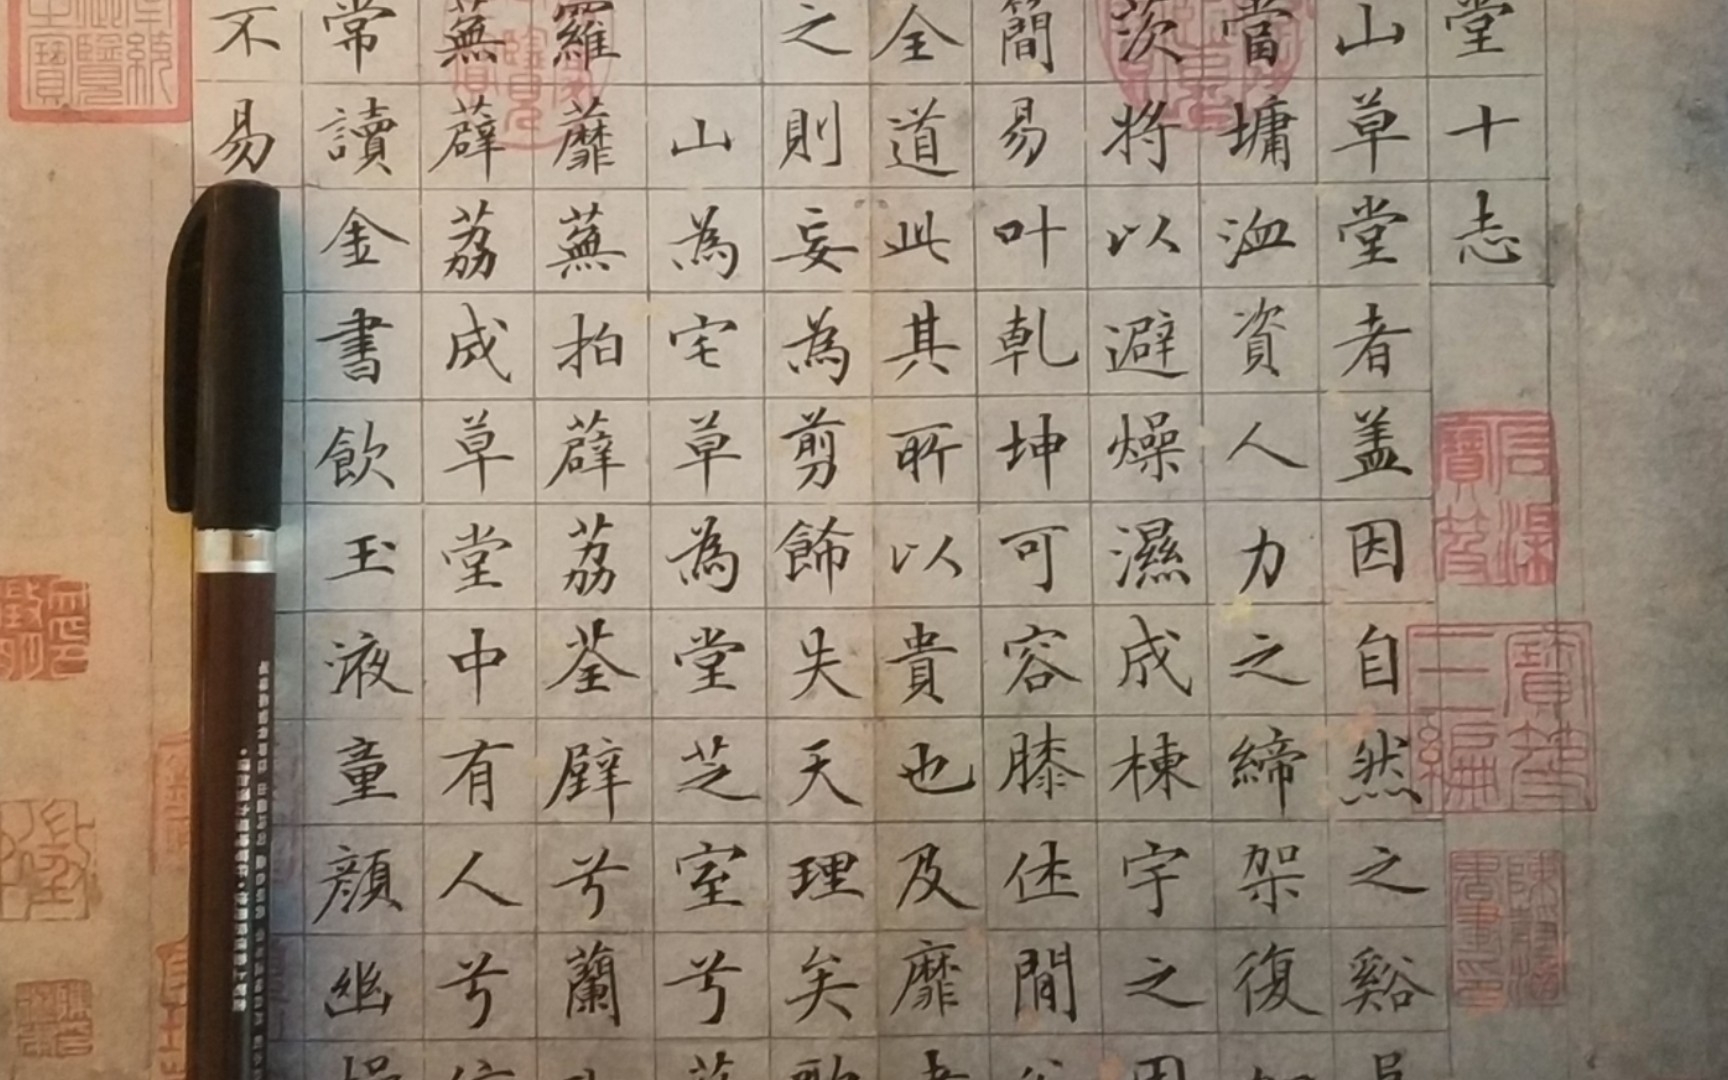 堂十志
山草堂者盖因自然之谿
當墉洫資人力之締架復
茨将以避燥濕成棟宇之
簡易叶乹坤可容膝休閒
全道此其所以貴也及靡
之則妄為剪飾失天理矣
山為宅草為堂芝室兮
羅蘼蕪拍薜荔荃壁兮蘭
蕪薜荔成草堂中有人兮
常讀金書飲玉液童顔幽
不易